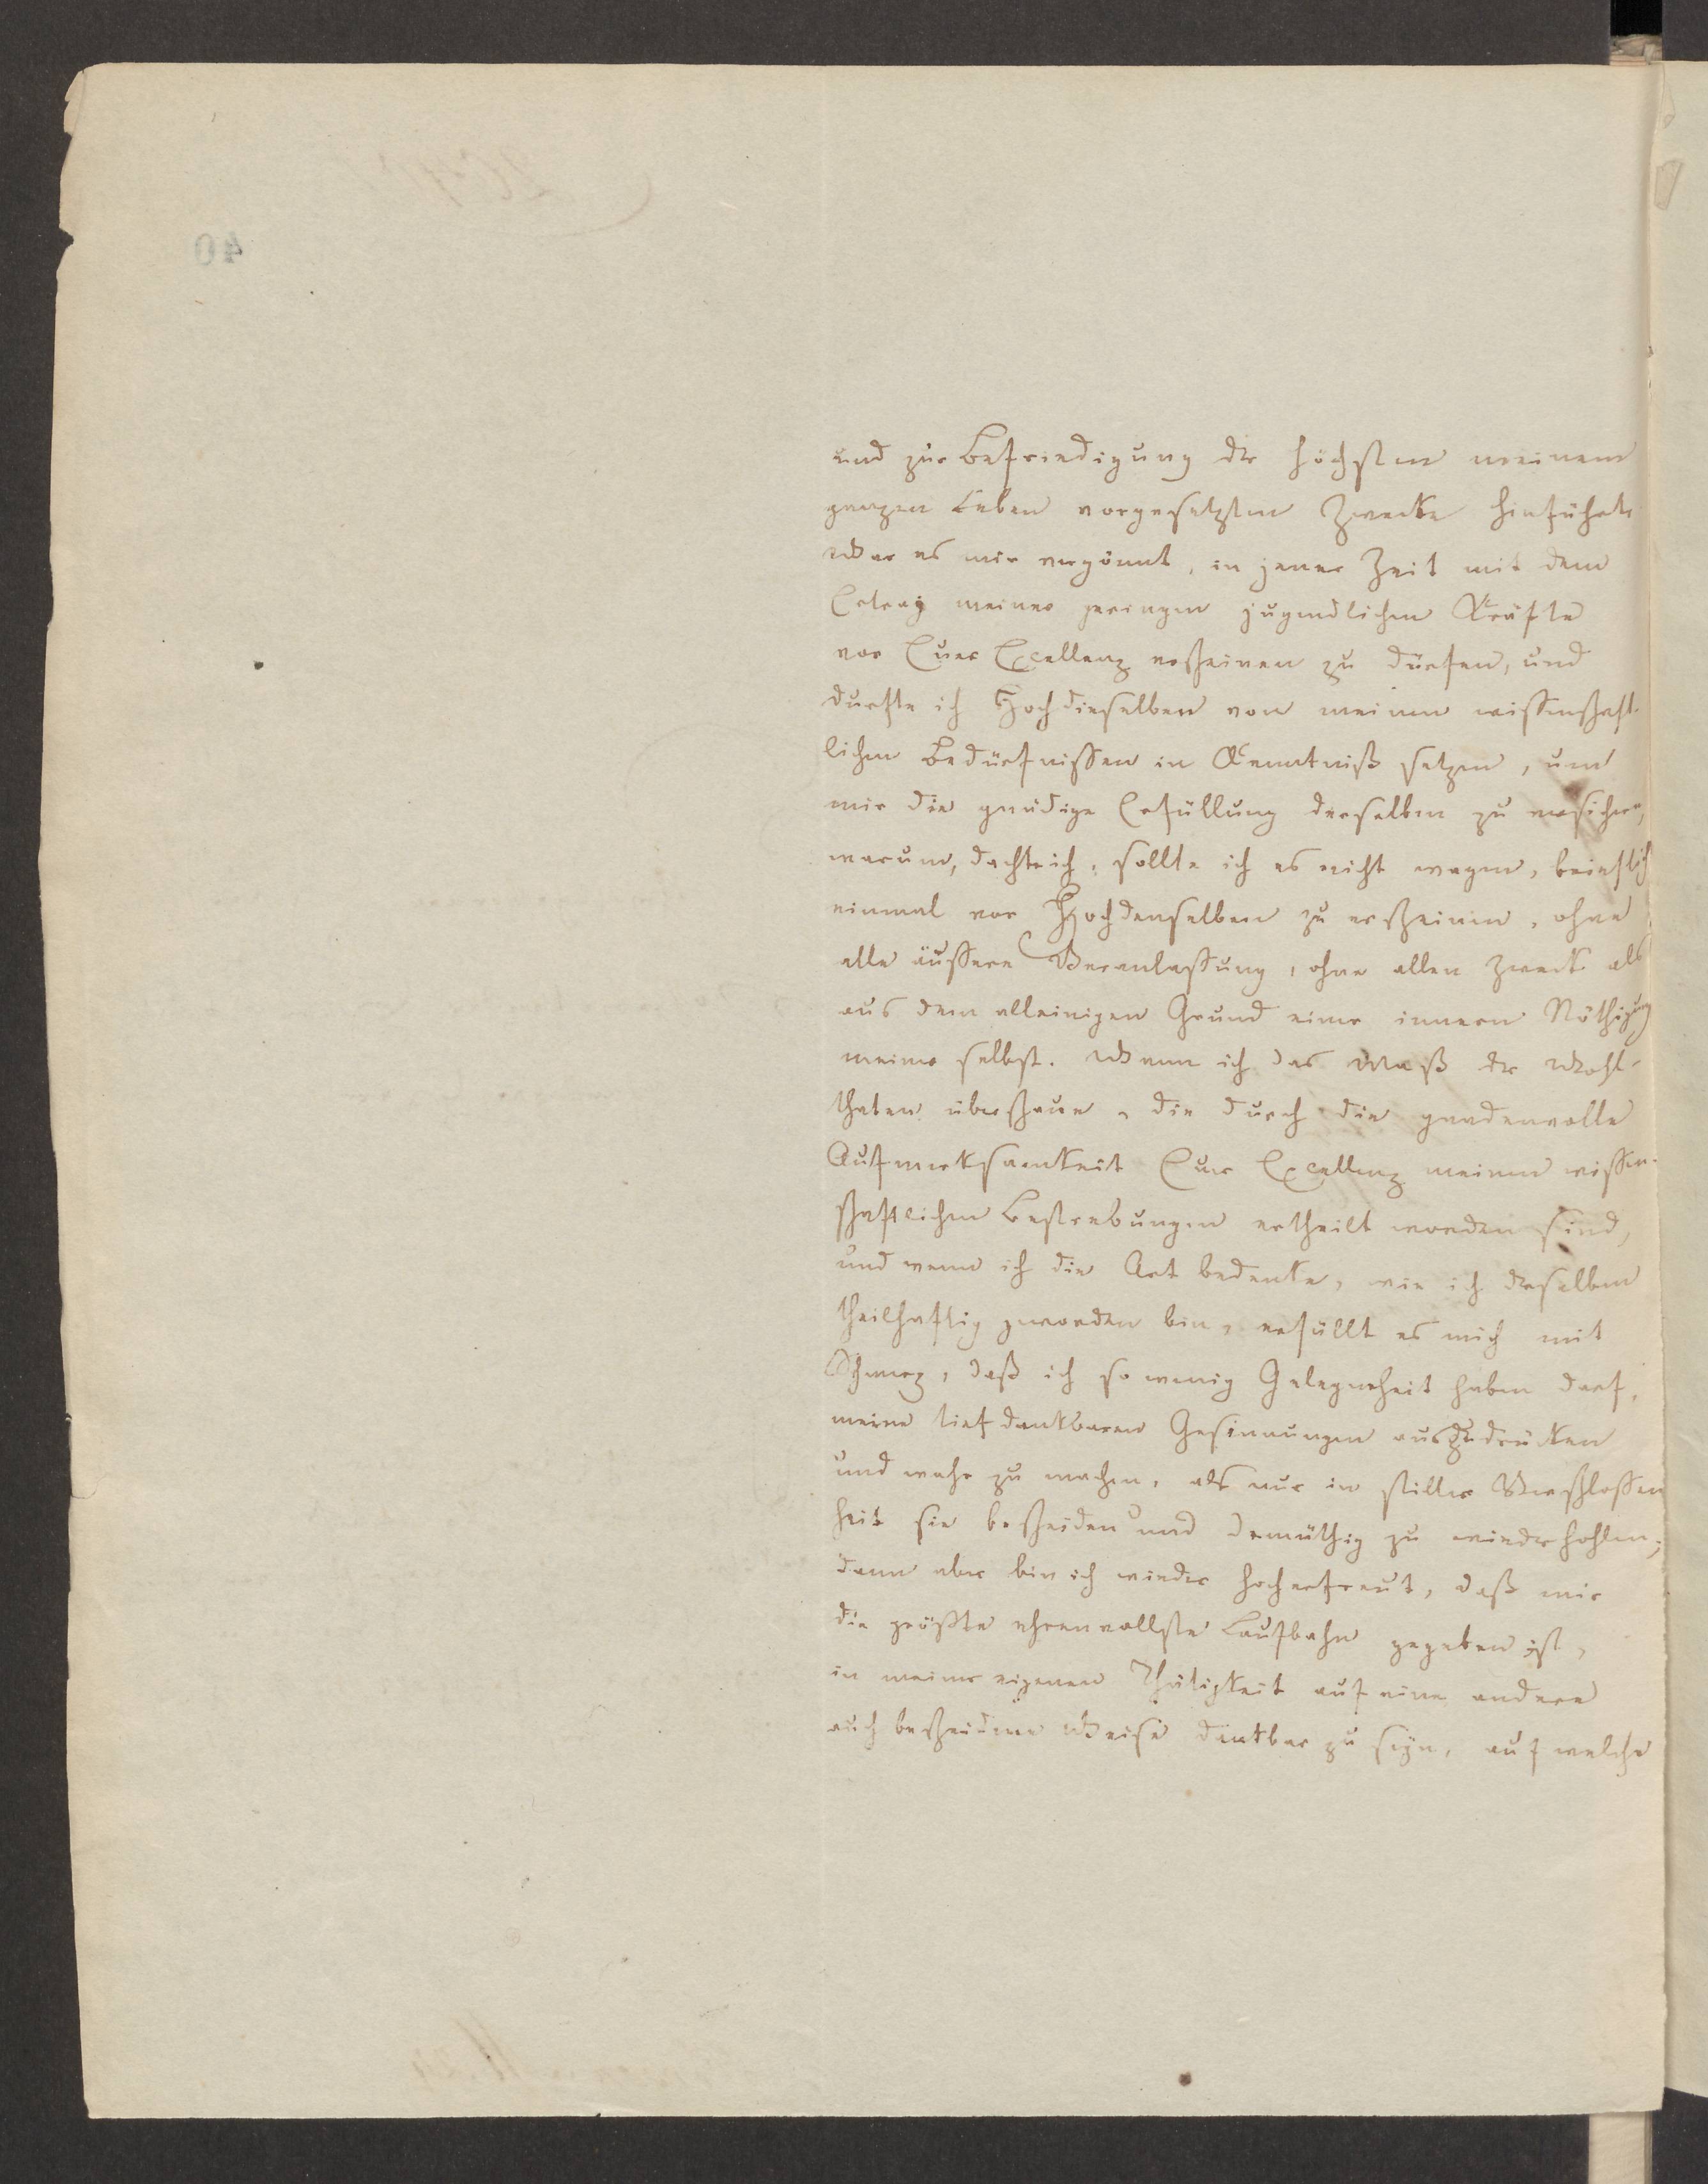 und zur Befriedigung der höchsten meinem
ganzen Leben vorgesetzten Zwecke hinführte
War es mir vergönnt, in jener Zeit mit dem
Ertrag meiner geringen jugendlichen Kräfte
vor Euer Excellenz erscheinen zu dürfen, und
durfte ich Hochdieselben von meinen wissenschaft-
lichen Bedürfnissen in Kenntniß setzen, um
mir die gnädige Erfüllung derselben zu
warum, dacht ich, sollte ich es nicht wagen,
einmal vor Hochdenselben zu erscheinen, ohne
alle äussere Veranlassung, ohne allen Zweck als
aus dem alleinigen Grund einer innern Nöthigung
meiner selbst. Wenn ich das Maß der Wohl-
thaten überschaue, die durch die gnadenvolle
Aufmerksamkeit Euer Excellenz meinen wissen-
schaftlichen Bestrebungen ertheilt worden sind,
und wenn ich die Art bedenke, wie ich derselben
theilhaftig geworden bin, erfüllt es mich mit
Schmerz, daß ich so wenig Gelegenheit haben darf,
meine tief dankbaren Gesinnungen auszudrücken
und wahr zu machen, als nur in stiller Verschlossen
heit sie bescheiden und demüthig zu wiederhohlen;
dann aber bin ich wieder hocherfreut, daß mir
die größte ehrenvollste Laufbahn gegeben ist,
in meiner eigenen Thätigkeit auf eine andere
auch bescheidene Weise dankbar zu seyn, auf welche